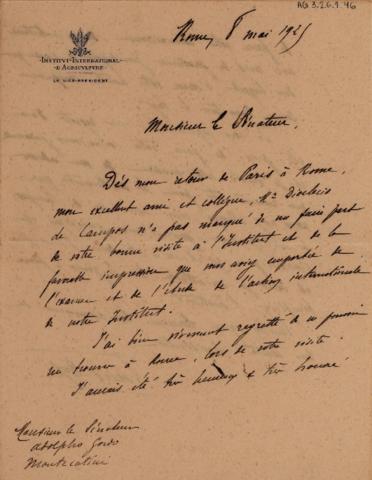 AG 3.2.6.1.46
INSTITUT INTERNATIONAL
D'AGRICULTURE
LE VICE-PRÉSIDENT
Rome, 8 mai 1925
Monsieur le Sénateur,
Dès mon retour de Paris à Rome,
mon excellent ami et collègue, Mr
de Campos n'a pas manqué de me faire part
de votre bonne visite à l'Institut et de la
favorable impression que vous aviez emportée de
l'examen et de l'étude de l'action internationale
de notre Institut.
J'ai bien vivement regretté de ne pouvoir
me trouver à Rome, lors de votre visite.
J'aurais été très heureux & très honoré
Monsieur le Sénateur
Adolpho Gordo
Montecatini